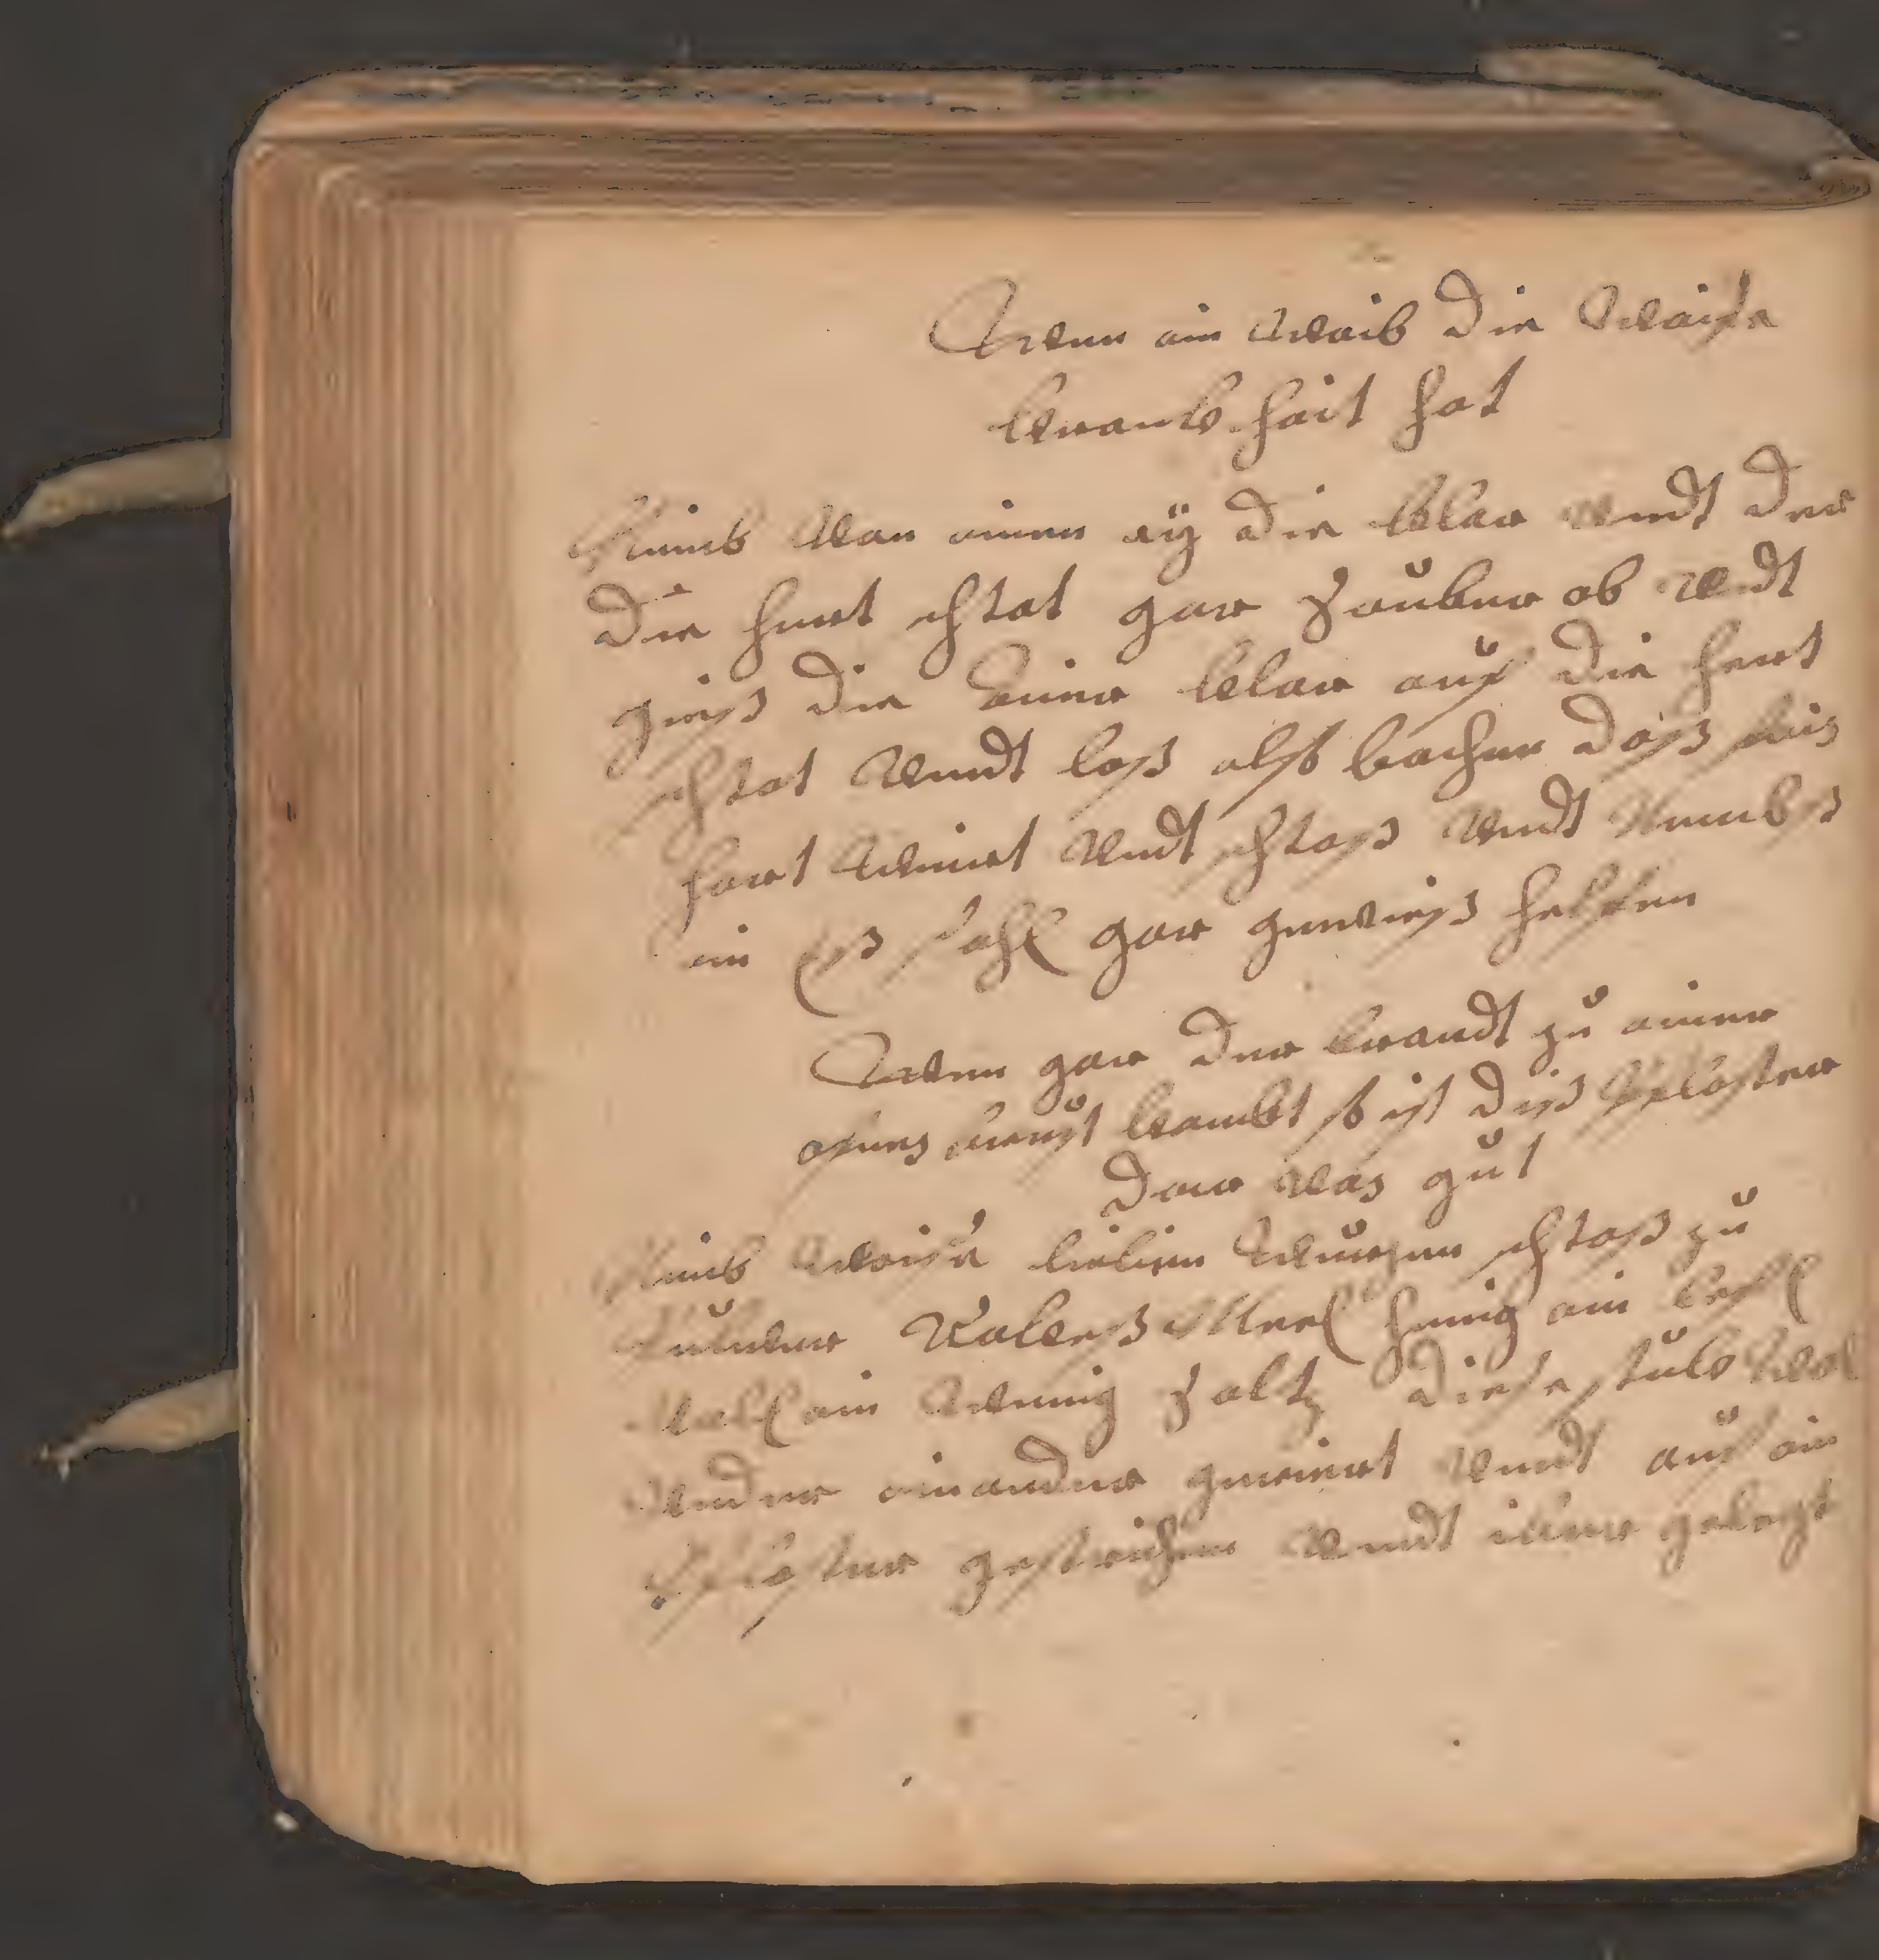 Wenn ein Weib die Weiße
krankheit hat
Nimb Von einen aÿ die klar vndt ker
die hert stat gar sauber ab vndt
gieß die aaier klar auf die hert
stat vndt laß also bachen daß sies
hart wiert vndt stoß vndt Nembs
ein Eß soll gar gewieß helffen
Wenn gar der brandt zu einer
ofnes brust kombt so ist diß pflaster
dar vas gut
Nimb Weiße lielien Wurzen stoß zu
pulver Rokes Mell henig ein lefl
voll ein wenig saltz diese stuk wol
vnder einander gerieret vndt auf ein
pflaster gestrichen vndt iber gelegt